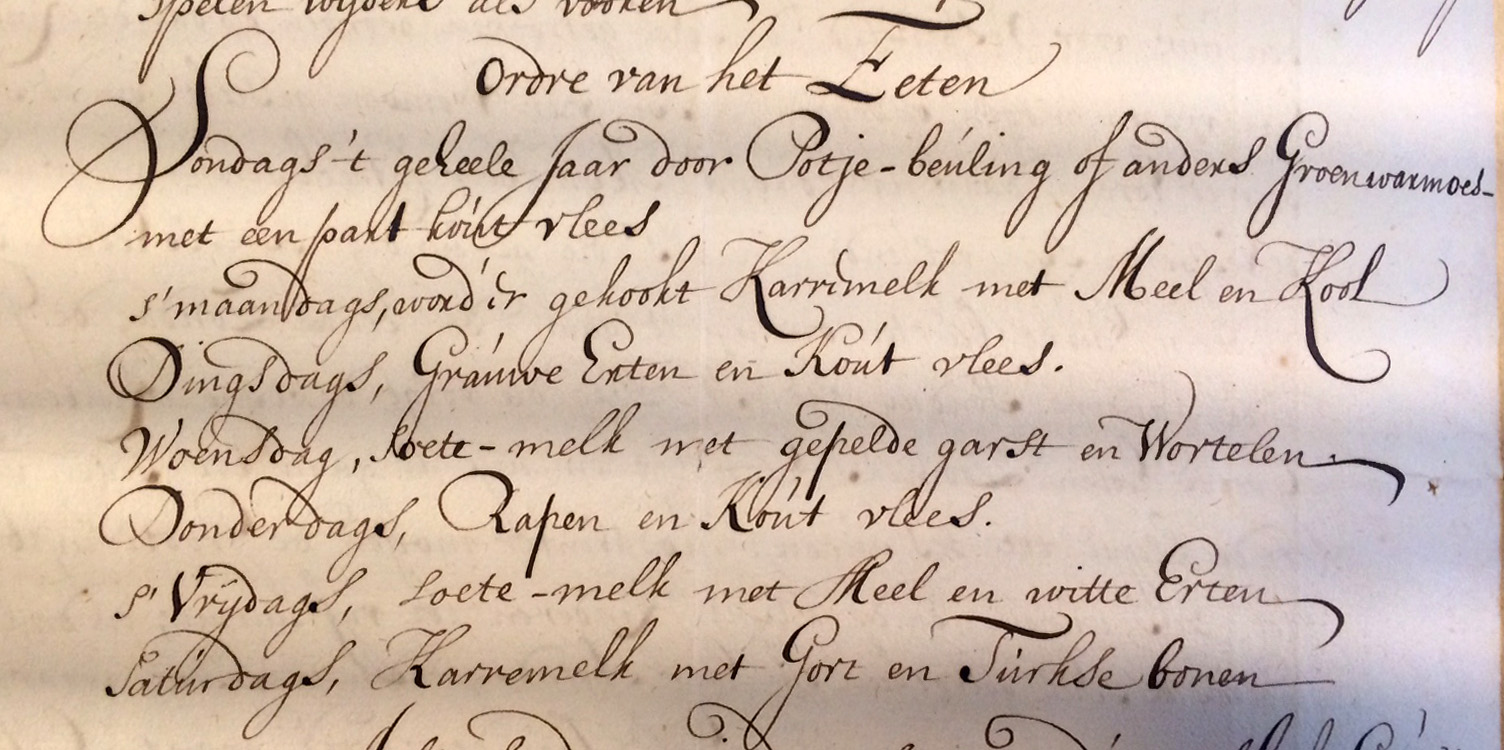 spelen wijders als vooren
Ordre van het Eeten
Sondags 't geheele Jaar door Potje-beúling of anders Groenwarmoes-
met een part koút vlees
s'maandags, word'er gekookt Karremelk met Meel en Kool
Dingsdags, Graúwe Erten en Koút vlees.
Woensdag, soete-melk met gepelde garst en Wortelen.
Donderdags, Rapen en Koút vlees.
s'Vrÿdags, soete-melk met Meel en witte Erten
Satúrdags, Karremelk met Gort en Túrkse bonen